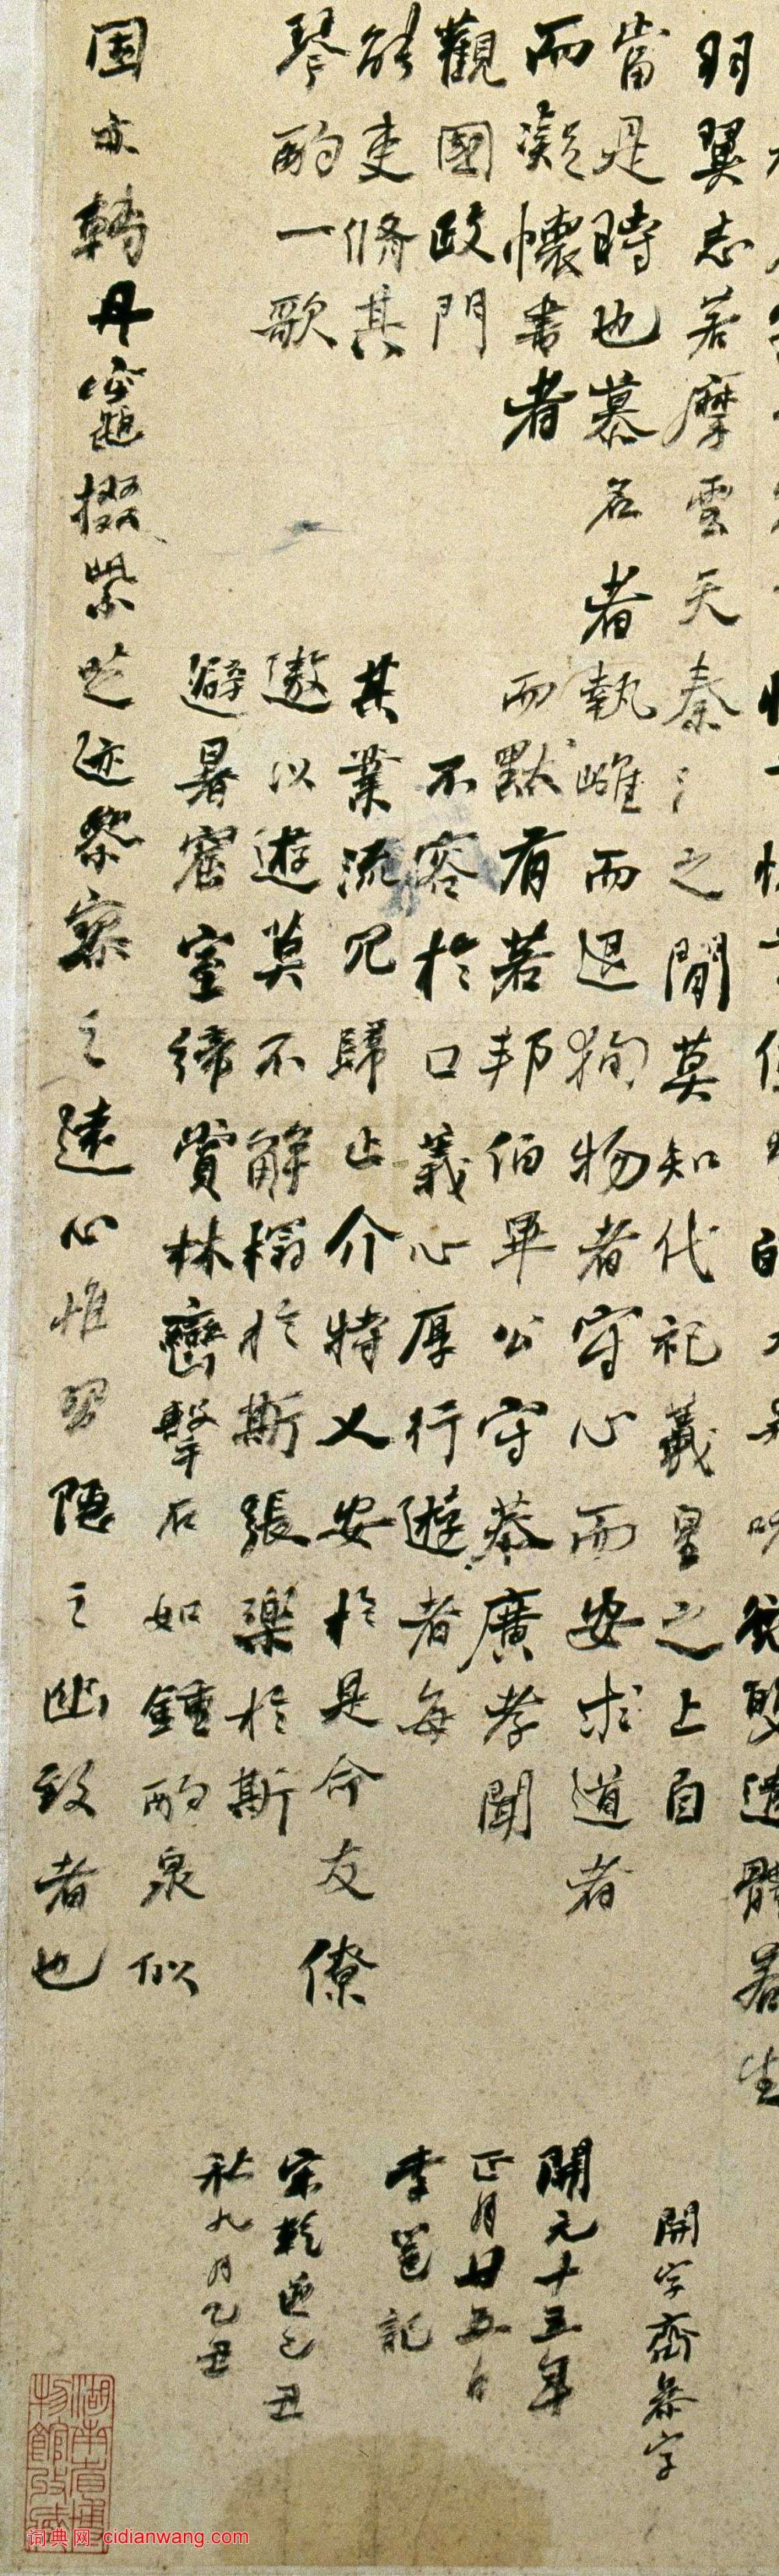 遺體若生
羽翼志若摩雲天秦〻之間莫知代祀義皇之上自
當是時也慕名者執雌而退狥物者守心而安求道者
而凝懷書者 而默有若邦伯畢公守恭廣孝聞
觀國政門 不容於口義心厚行遊者每
能吏脩其 其業流冗歸止介特乂安於是命友僚
琴酌一歌 遨以遊莫不解榻於斯張樂於斯
避暑窟室締賞林巒擊石如鍾酌泉似
固亦轉丹竈掇紫芝迹寥之遠心惟習隱之幽致者也
開字齋恭字
開元十五年
正月廿五日
李邕記
宋乾道己丑
秋九月乙丑
湖南省博
物館收藏
词典网 cidianwang.com